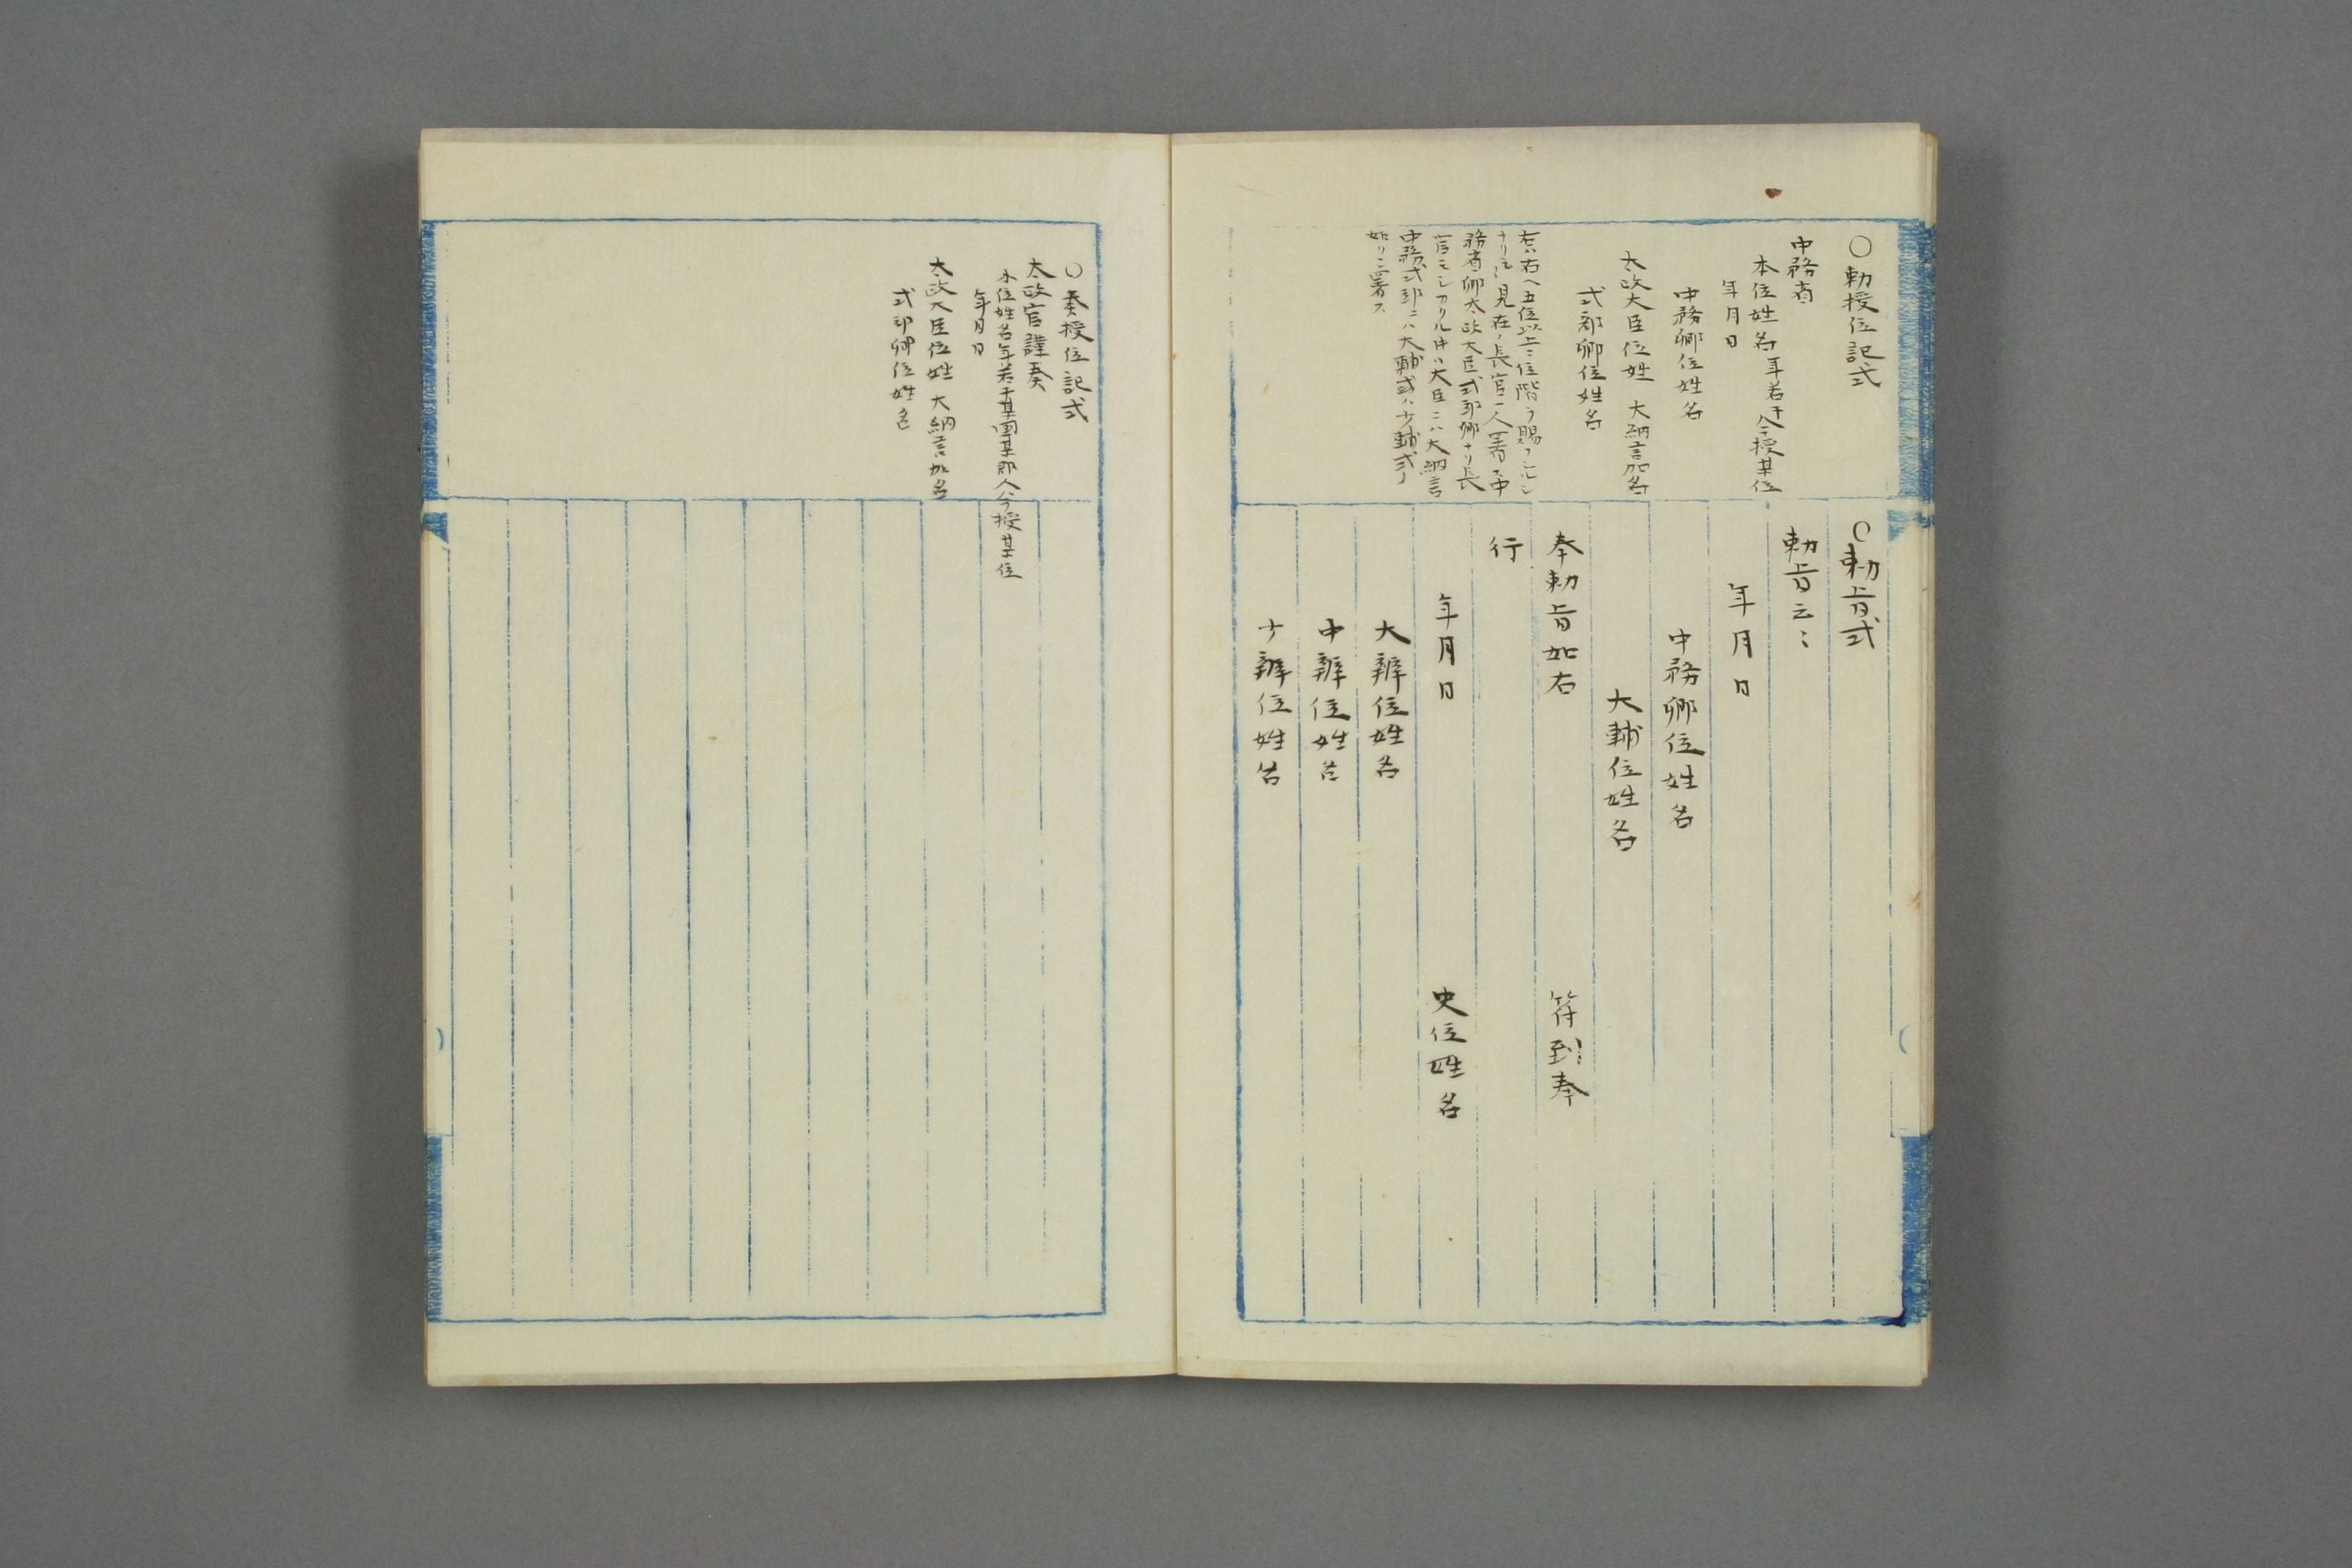 ○勅授位記式
中務省
本位姓名年若干今授某位
年月日
中務卿位姓名
太政大臣位姓 大納言加名
式部卿位姓名
右ハ右ヘ五位以上ニ位階ヲ賜フ
ナリ 見在ノ長官一人署ス中
務省卿太政大臣式部卿ナリ長
官モシカリル片ハ大臣ニハ大納言
中務式部ニハ大輔或ハ少輔式ノ
如リニ署ス
○勅旨式
勅旨云〻
年月日
中務卿位姓名
大輔位姓名
奉勅旨如右 符到奉
行
年月日 史位姓名
大辨位姓名
中辨位姓名
少辨位姓名
○奏授位記式
太政官謹奏
本位姓名年若干某国某郡人今授某位
年月日
太政大臣位姓 大納言加名
式部卿位姓名